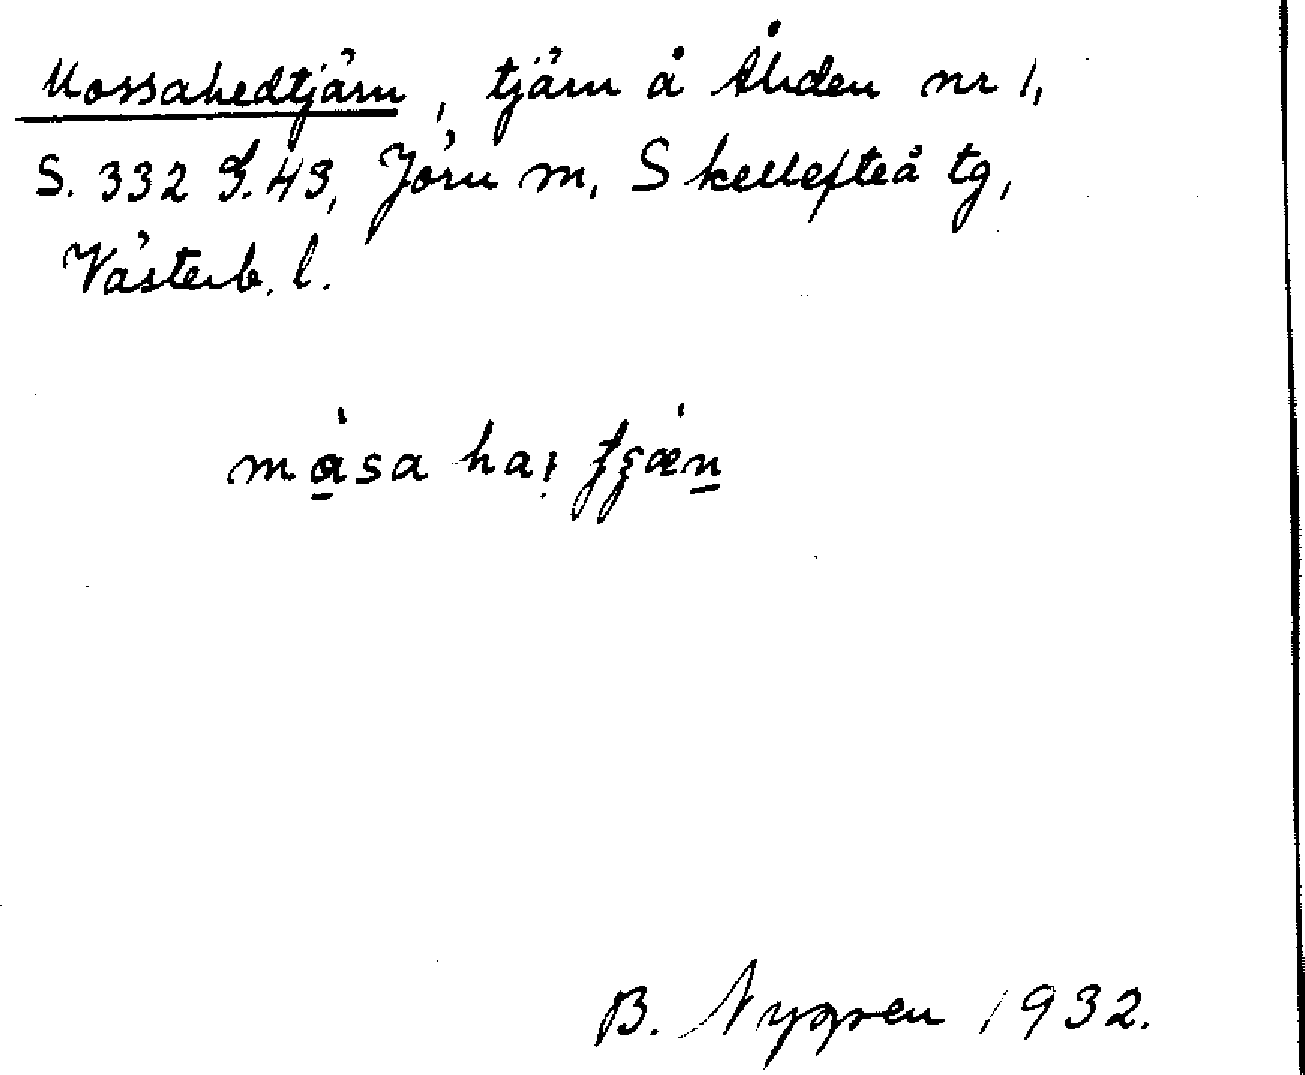 Mossahedtjärn, tjärn å Åliden nr 1,
S. 332 S. 43, Jörn sn, Skellefteå tg,
Västerb. l.
måsa ha
B. Nygren 1932.